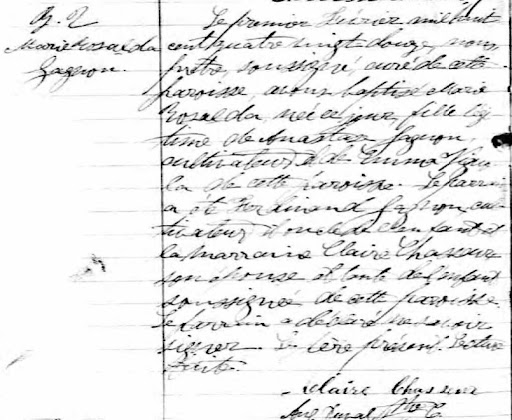 B. 2
Marie Rosalda
Gagnon.
Le premier février mil huit
cent quatre vingt douze, nous,
prêtre, soussigné, curé de cette
paroisse, avons baptisé Marie
Rosalda, née ce jour, fille légi-
time de Anastas Gagnon
cultivateur, & de Emma
de cette paroisse. Le parrain
a été Ferdinand Gagnon, cul-
tivateur, oncle de l'enfant et
la marraine Claire Chasseur
son épouse et tante de l'enfant
soussignée de cette paroisse.
Le parrain a déclaré ne savoir
signer. Le père présent. Lecture
faite.
Claire Chasseur